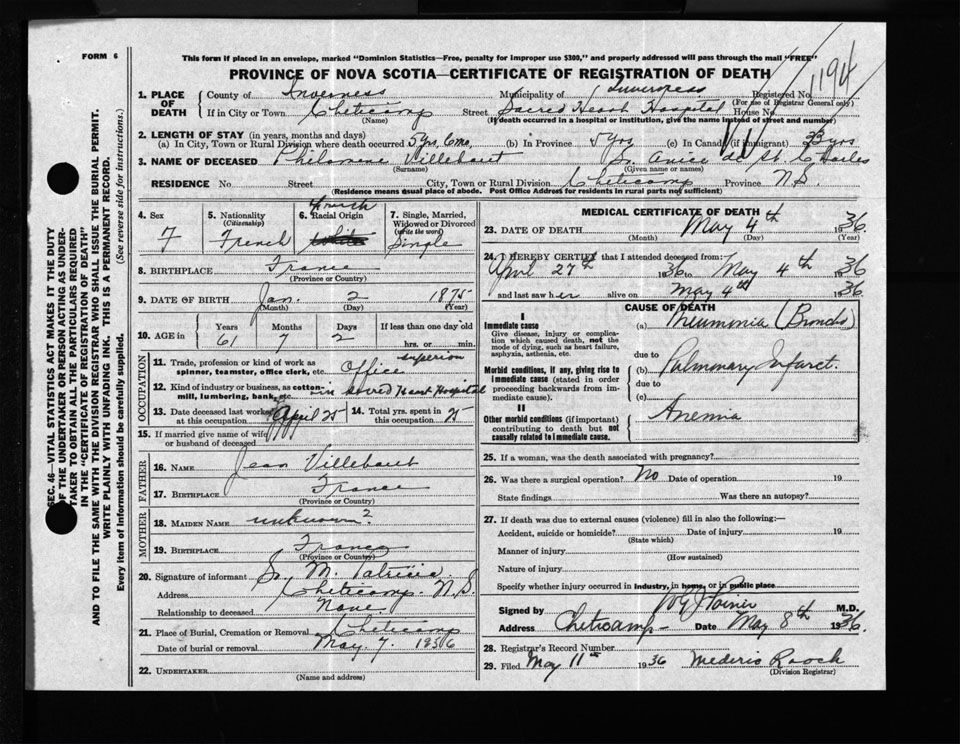 FORM 6
This form if placed in an envelope, marked "Dominion Statistics—Free, penalty for improper use $300," and properly addressed will pass through the mail "FREE"
PROVINCE OF NOVA SCOTIA—CERTIFICATE OF REGISTRATION OF DEATH
1194
1. PLACE OF DEATH County of Inverness Municipality of Inverness Registered No. (For use of Registrar General only)
If in City or Town Cheticamp (Name) Street Sacred Heart Hospital House No.
(If death occurred in a hospital or institution, give the name instead of street and number)
2. LENGTH OF STAY (in years, months and days)
(a) In City, Town or Rural Division where death occurred 5 yrs, 6 mo, (b) In Province 5 yrs (c) In Canada (if immigrant) 33 yrs
3. NAME OF DECEASED Philomene Villebaut (Surname) Sr. Anice de St. Charles (Given name or names)
RESIDENCE No. Street City, Town or Rural Division Cheticamp Province N.S.
(Residence means usual place of abode. Post Office Address for residents in rural parts not sufficient)
4. Sex F
5. Nationality (Citizenship) French
6. Racial Origin French white
7. Single, Married, Widowed or Divorced (write the word) Single
8. BIRTHPLACE France (Province or Country)
9. DATE OF BIRTH Jan. 2 1875 (Month) (Day) (Year)
10. AGE in Years 61 Months 7 Days 2 If less than one day old hrs. or min.
OCCUPATION
11. Trade, profession or kind of work as spinner, teamster, office clerk, etc. Office superior
12. Kind of industry or business, as cotton-mill, lumbering, bank, etc. in Sacred Heart Hospital
13. Date deceased last worked at this occupation April 25
14. Total yrs. spent in this occupation 25
15. If married give name of wife or husband of deceased
FATHER
16. NAME Jean Villebaut
17. BIRTHPLACE France (Province or Country)
MOTHER
18. MAIDEN NAME unknown ?
19. BIRTHPLACE France (Province or Country)
20. Signature of informant Sr. M. Patricia
Address Cheticamp N.S.
Relationship to deceased None
21. Place of Burial, Cremation or Removal Cheticamp
Date of burial or removal May. 7. 1936
22. UNDERTAKER (Name and address)
MEDICAL CERTIFICATE OF DEATH
23. DATE OF DEATH May 4th 1936 (Month) (Day) (Year)
24. I HEREBY CERTIFY that I attended deceased from:
April 27th 1936 to May 4th 1936
and last saw her alive on May 4th 1936
CAUSE OF DEATH
I
Immediate cause
Give disease, injury or complication which caused death, not the mode of dying, such as heart failure, asphyxia, asthenia, etc.
(a) Pneumonia (Broncho)
due to
Morbid conditions, if any, giving rise to immediate cause (stated in order proceeding backwards from immediate cause).
(b) Pulmonary Infarct.
due to
(c)
II
Other morbid conditions (if important) contributing to death but not causally related to immediate cause.
Anemia
25. If a woman, was the death associated with pregnancy?
26. Was there a surgical operation? No Date of operation 19
State findings Was there an autopsy?
27. If death was due to external causes (violence) fill in also the following:—
Accident, suicide or homicide? (State which) Date of injury 19
Manner of injury (How sustained)
Nature of injury
Specify whether injury occurred in industry, in home, or in public place
Signed by M.D.
Address Cheticamp Date May 8th 1936.
28. Registrar's Record Number
29. Filed May 11th 1936 (Division Registrar)
SEC. 46—VITAL STATISTICS ACT MAKES IT THE DUTY
OF THE UNDERTAKER OR PERSON ACTING AS UNDER-
TAKER TO OBTAIN ALL THE PARTICULARS REQUIRED
IN THE "CERTIFICATE OF REGISTRATION OF DEATH"
AND TO FILE THE SAME WITH THE DIVISION REGISTRAR WHO SHALL ISSUE THE BURIAL PERMIT.
WRITE PLAINLY WITH UNFADING INK. THIS IS A PERMANENT RECORD.
Every item of Information should be carefully supplied. (See reverse side for instructions.)